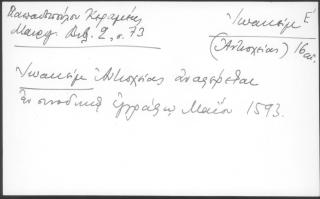 Παπαδοπούλου Κεραμέως
Μαυρογ. Βιβλ. 2, σ. 73
Ἰωακεὶμ Ε΄
(Ἀντιοχείας) 16 αἰ.
Ἰωακεὶμ Ἀντιοχείας ἀναφέρεται
ἐν συνοδικῷ ἐγγράφῳ Μαΐου 1593.